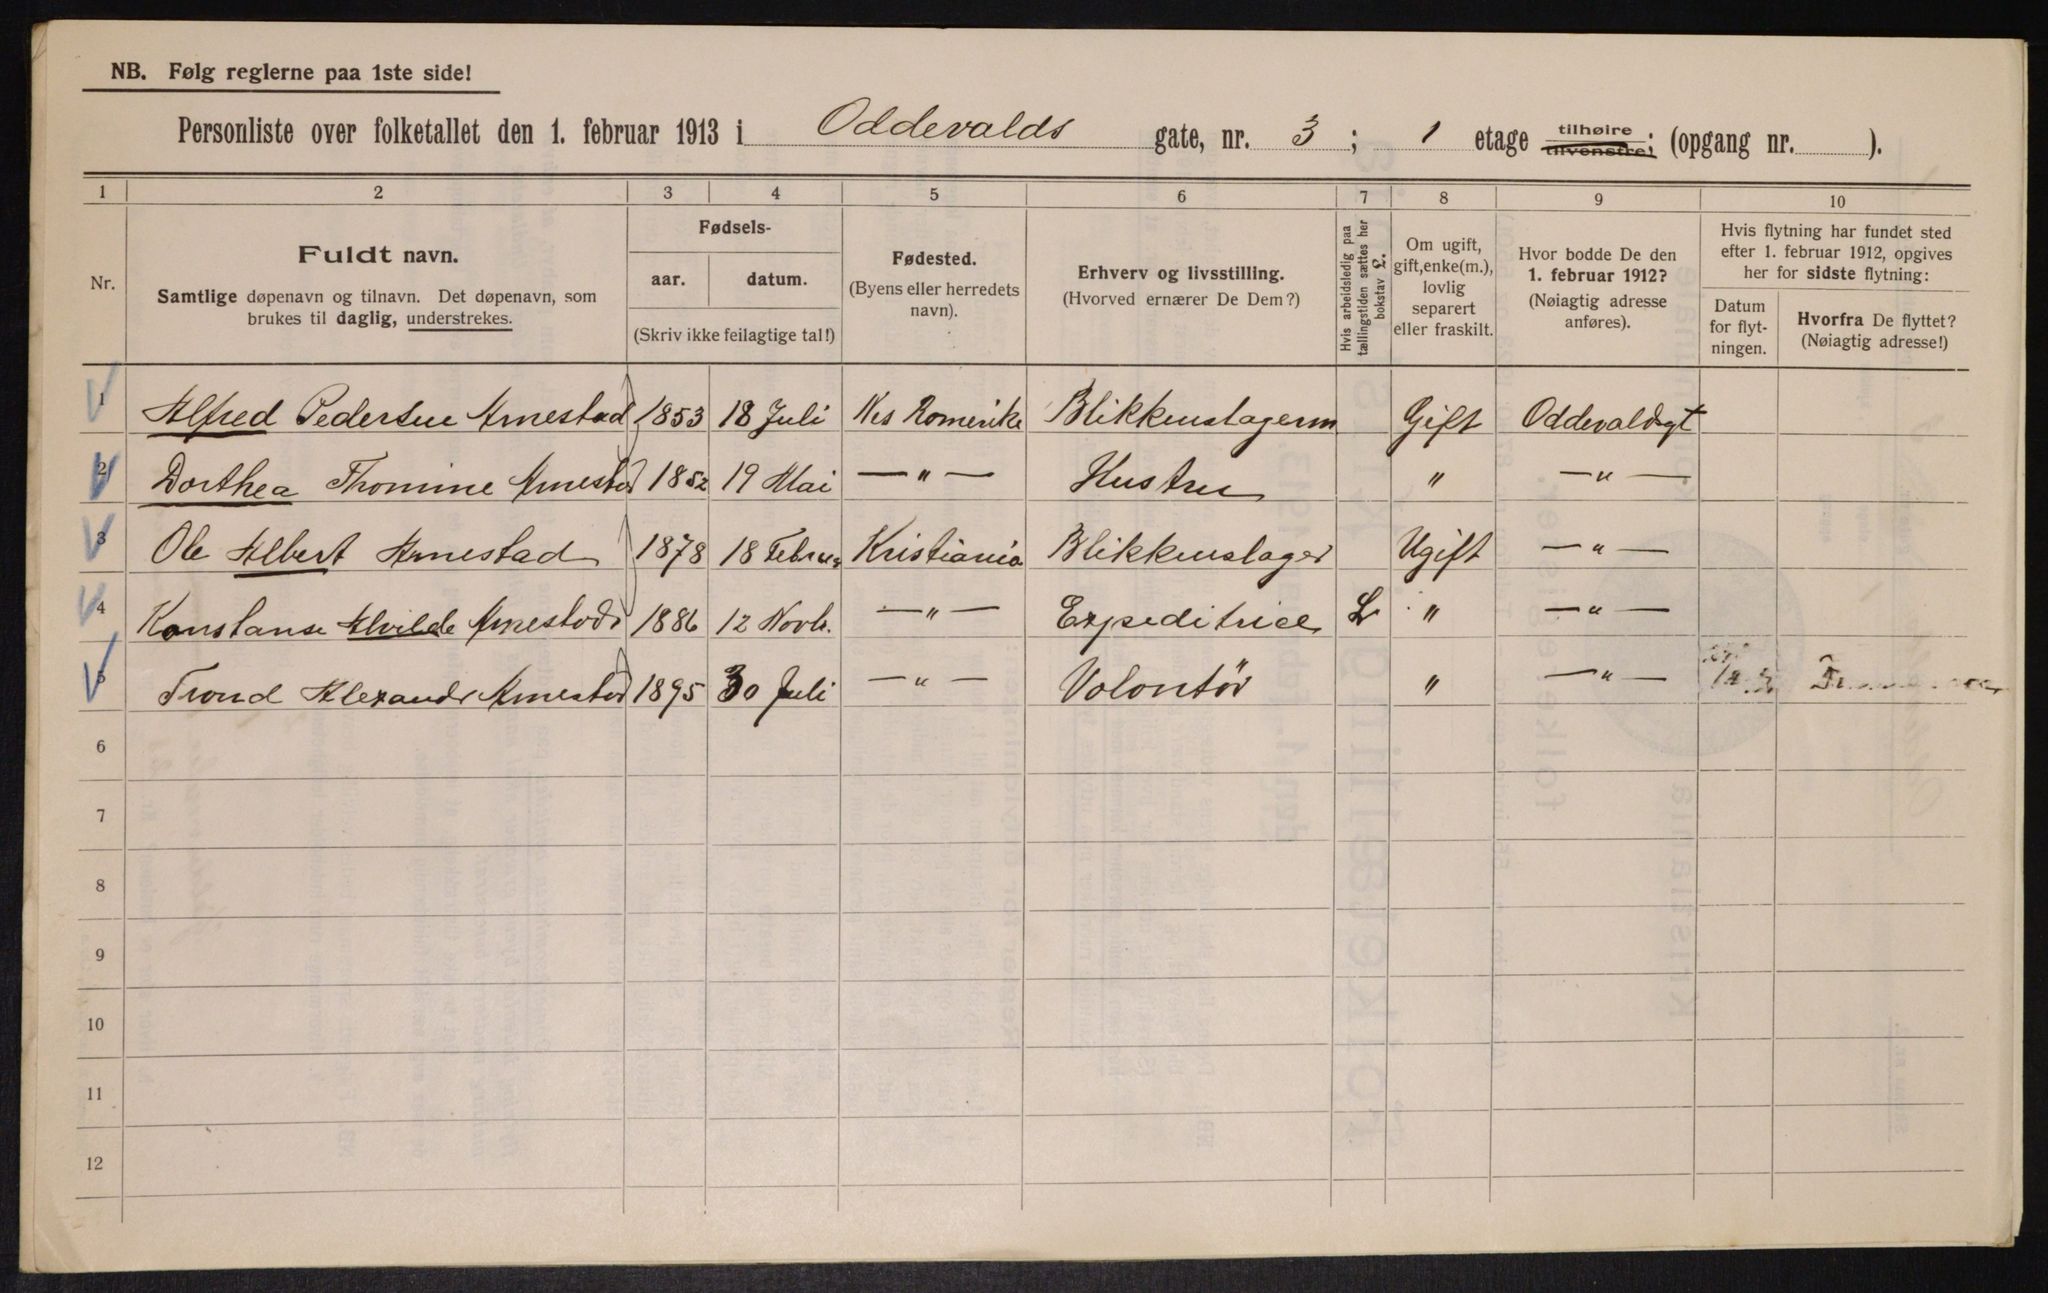 NB. Følg reglerne paa 1ste side!
Personliste over folketallet den 1. februar 1913 i Oddevalds gate, nr. 3 ; 1 etage tilhøire tilvenstre; (opgang nr. ).
1 2 3 4 5 6 7 8 9 10
Nr.
Fuldt navn.
Samtlige døpenavn og tilnavn. Det døpenavn, som
brukes til daglig, understrekes.
Fødsels-
aar. datum.
(Skriv ikke feilagtige tal!)
Fødested.
(Byens eller herredets
navn).
Erhverv og livsstilling.
(Hvorved ernærer De Dem?)
Hvis arbeidsledig paa
tællingstiden sættes her
bokstav L.
Om ugift,
gift, enke(m.),
lovlig
separert
eller fraskilt.
Hvor bodde De den
1. februar 1912?
(Nøiagtig adresse
anføres).
Hvis flytning har fundet sted
efter 1. februar 1912, opgives
her for sidste flytning:
Datum
for flyt-
ningen.
Hvorfra De flyttet?
(Nøiagtig adresse!)
1 Alfred Pedersen Arnestad 1853 18 Juli Nes Romerike Blikkenslagerm Gift Oddevaldsgt
2 Dorthea Thomine Arnestad 1852 19 Mai — " — Hustru " — " —
3 Ole Albert Arnestad 1878 18 Februar Kristiania Blikkenslager Ugift — " —
4 Konstanse Alvilde Arnestad 1886 12 Novb. — " — Expeditrice L " — " —
5 Trond Alexander Arnestad 1895 30 Juli — " — Volontör " — " —
6
7
8
9
10
11
12